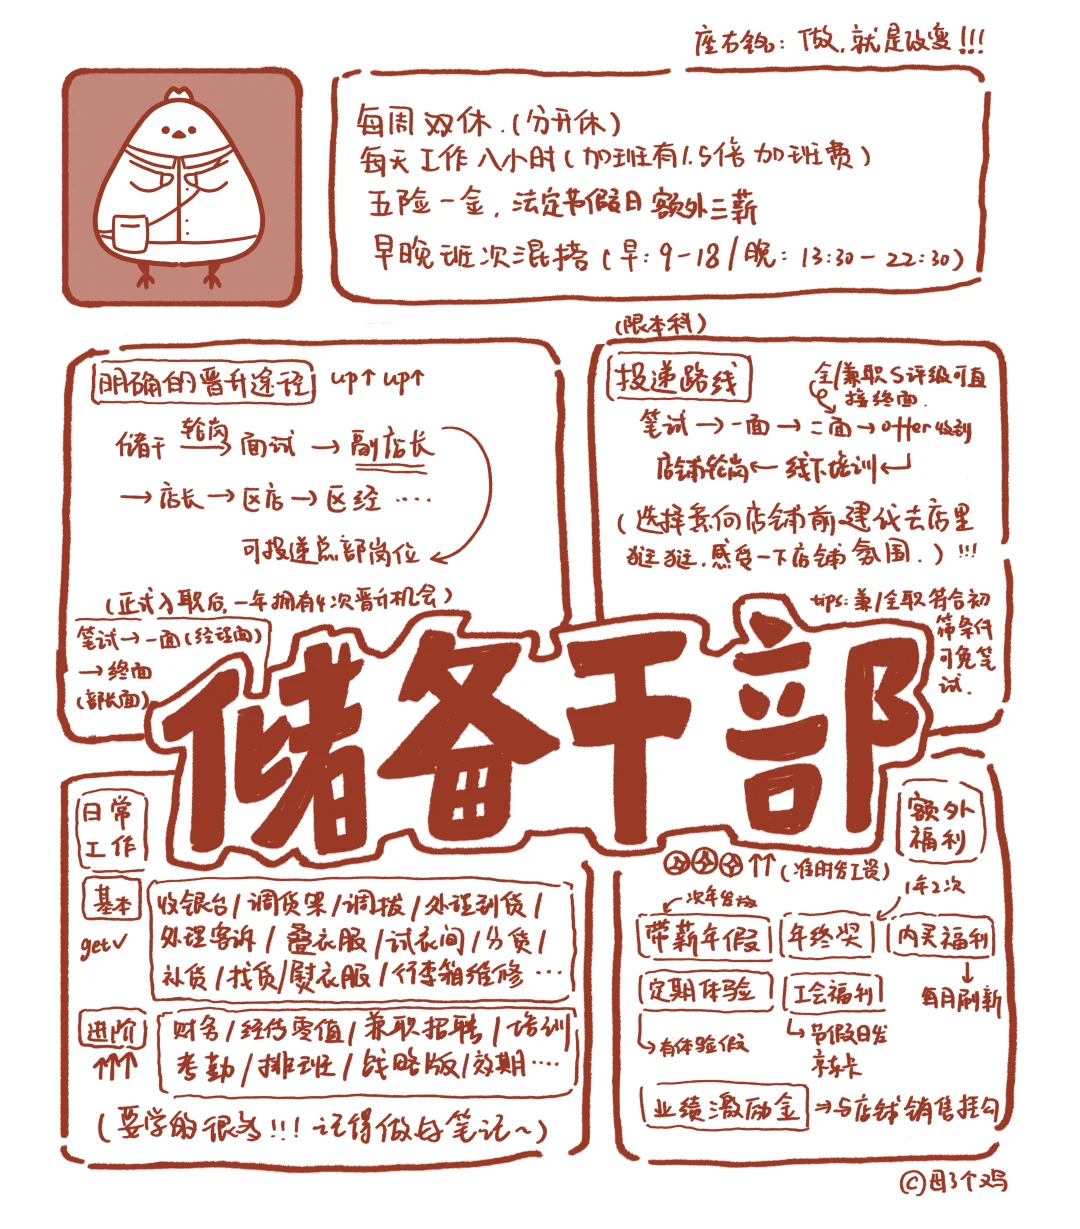 座右铭：做，就是改变!!!
每周双休.(分开休)
每天工作八小时(加班有1.5倍加班费)
五险一金，法定节假日额外三薪
早晚班次混搭(早:9-18/晚:13:30-22:30)
明确的晋升途径 up↑up↑
储干 轮岗→ 面试 → 副店长
→店长→区店→区经….
可投递总部岗位
(正式入职后,一年拥有4次晋升机会)
笔试→一面(经理面)
→终面
(部长面)
(限本科)
投递路线
全/兼职S评级可直
接终面.
笔试→一面→二面→offer收到
店铺轮岗←线下培训←
(选择意向店铺前,建议去店里
逛逛.感受一下店铺氛围.)!!!
tips:兼/全职符合初
筛条件
可免笔
试.
储备干部
日常
工作
基本
get✓
收银台/调货架/调拨/处理到货/
处理客诉/叠衣服/试衣间/分货/
补货/找货/熨衣服/行李箱维修…
进阶
↑↑↑
财务/经传零值/兼职招聘/培训
考勤/排班/战略版/效期….
(要学的很多!!!记得做好笔记~)
额外
福利
↑↑(准时发工资)
次年发放
1年2次
带薪年假
年终奖
内买福利
每月刷新
定期体验
工会福利
↳有体验假
↳节假日发
京东卡
业绩激励金→与店铺销售挂勾
©母3个鸡